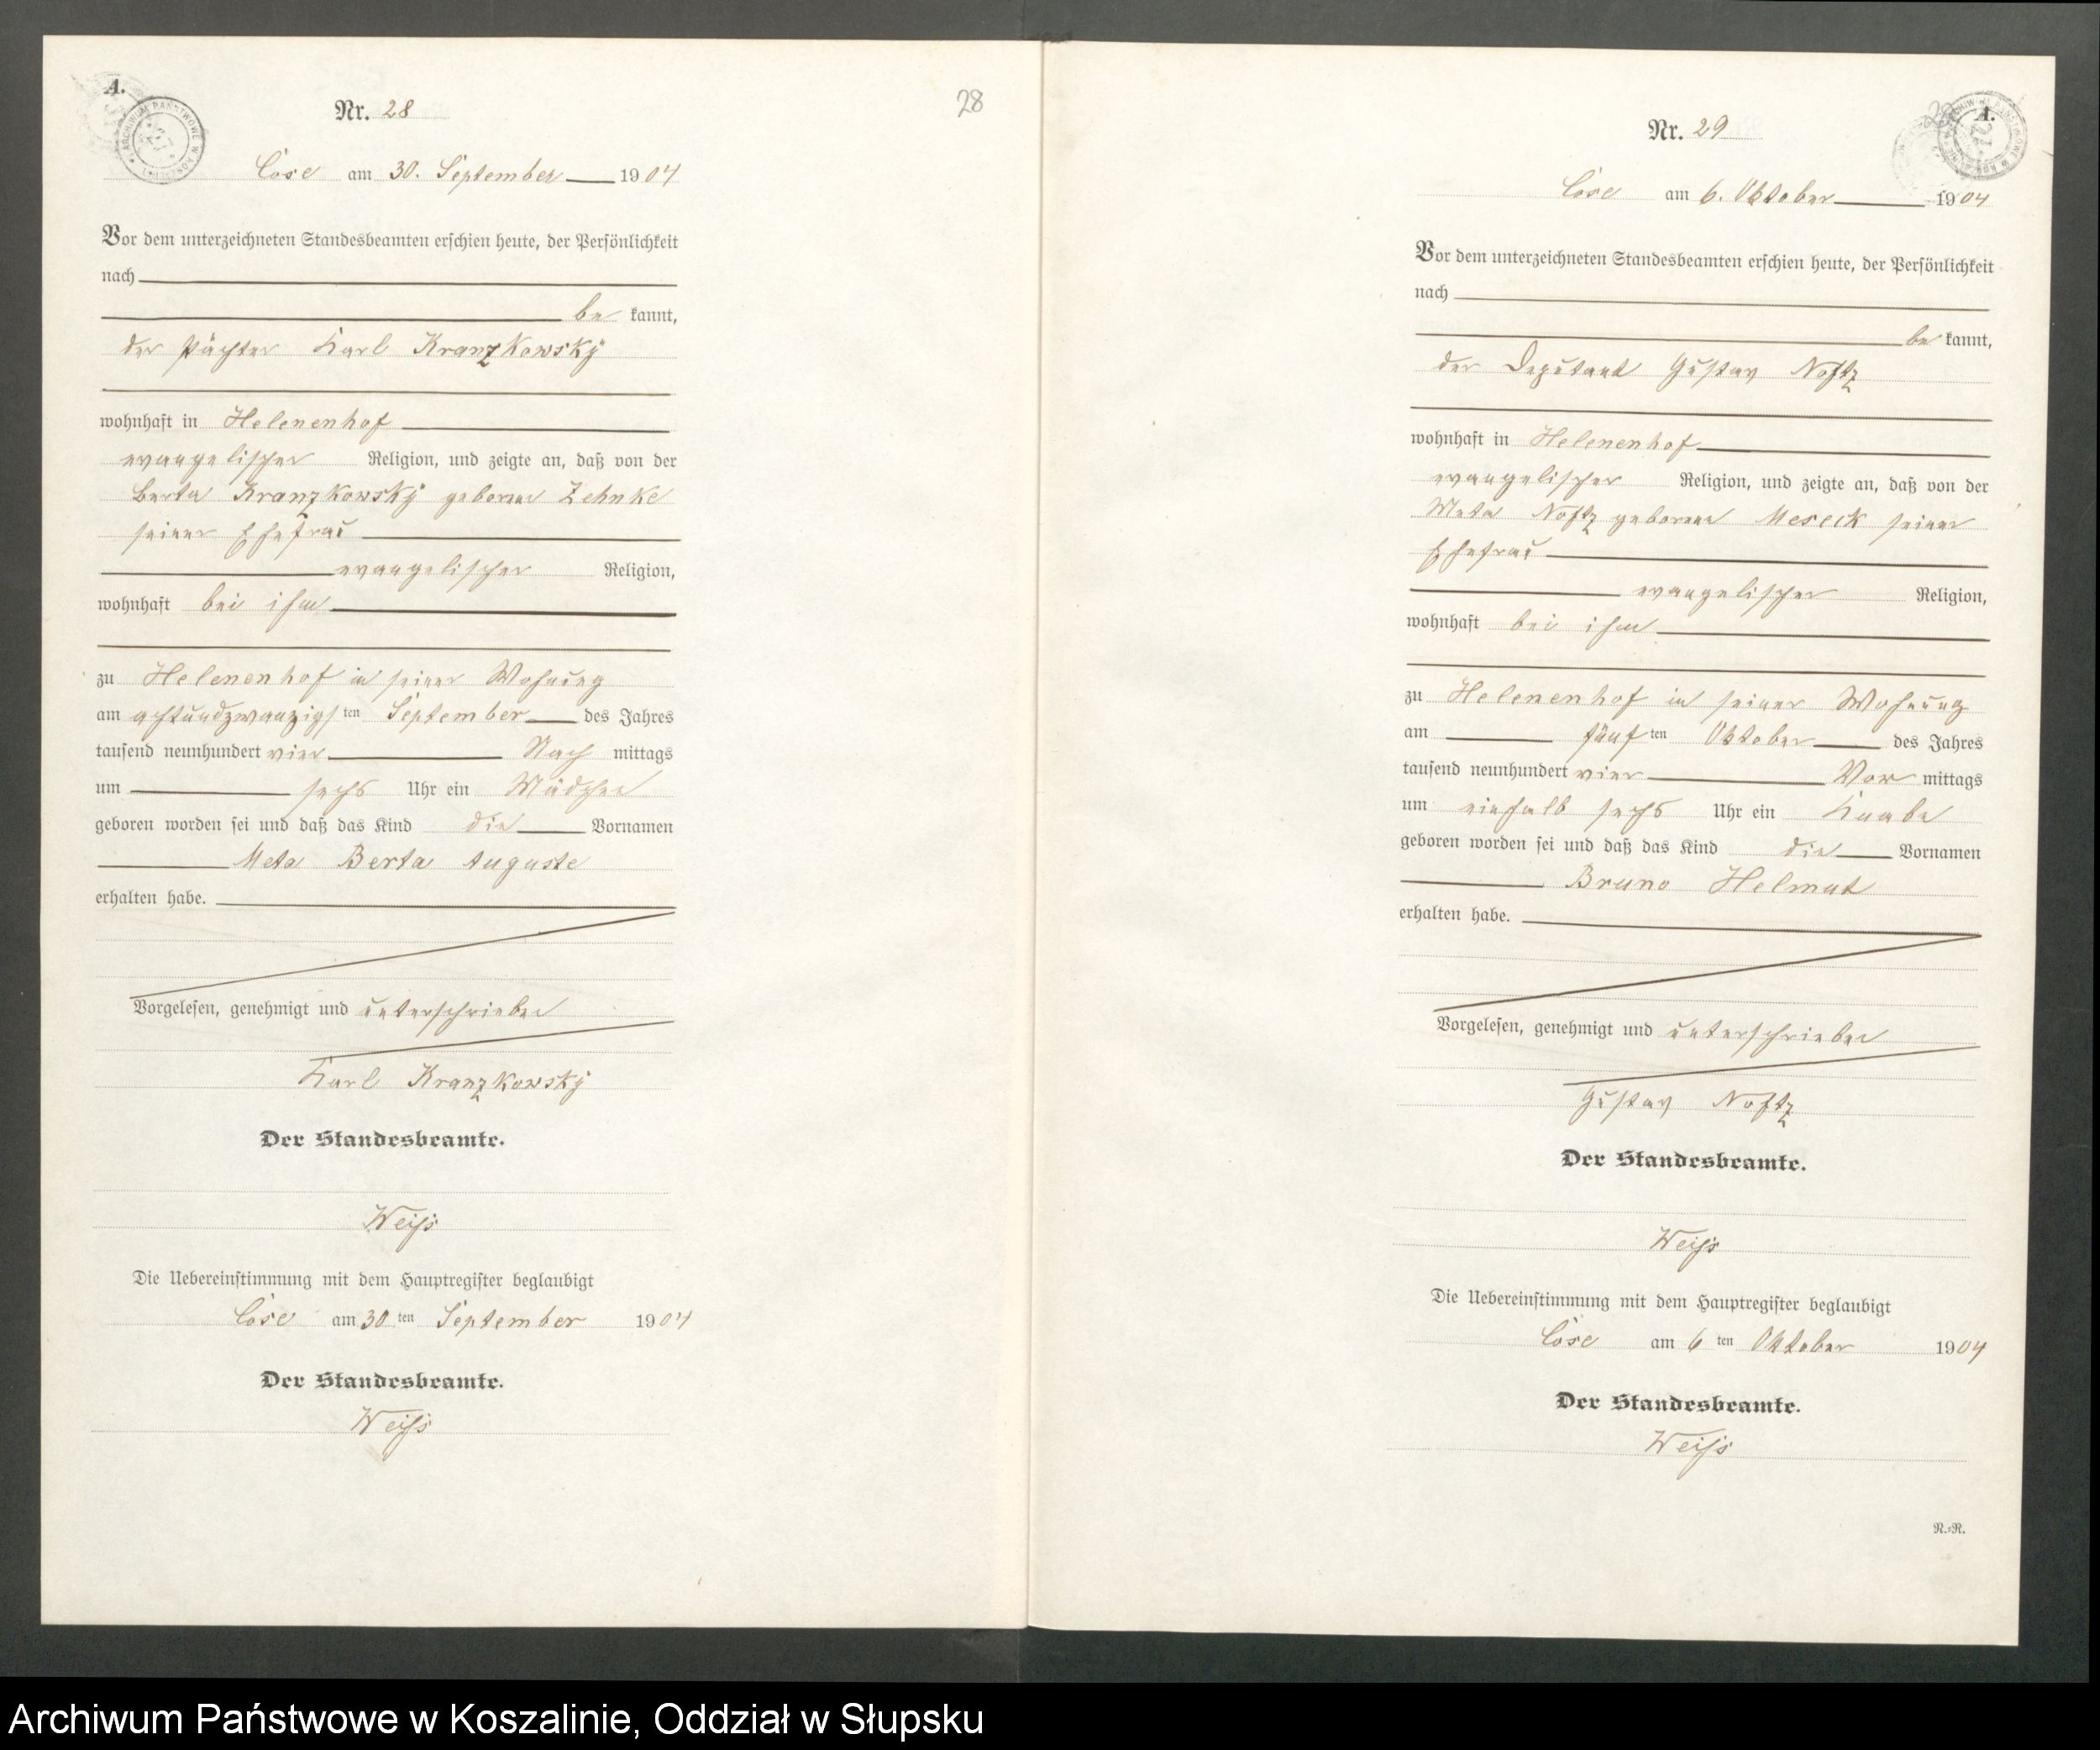 A.
Nr. 28
28
Cose am 30. September 1904
Vor dem unterzeichneten Standesbeamten erschien heute, der Persönlichkeit
nach
be kannt,
der Pächter Karl Kranzkowsky
wohnhaft in Helenenhof
evangelischer Religion, und zeigte an, daß von der
Berta Kranzkowsky geborene Zehnke
seiner Ehefrau
evangelischer Religion,
wohnhaft bei ihm
zu Helenenhof in seiner Wohnung
am achtundzwanzigsten September des Jahres
tausend neunhundert vier Nach mittags
um sechs Uhr ein Mädchen
geboren worden sei und daß das Kind die Vornamen
Meta Berta Auguste
erhalten habe.
Vorgelesen, genehmigt und unterschrieben
Karl Kranzkowsky
Der Standesbeamte.
Weiß
Die Uebereinstimmung mit dem Hauptregister beglaubigt
Cose am 30 ten September 1904
Der Standesbeamte.
Weiß
A.
Nr. 29
Cose am 6. Oktober 1904
Vor dem unterzeichneten Standesbeamten erschien heute, der Persönlichkeit
nach
be kannt,
der Deputant Gustav Noftz
wohnhaft in Helenenhof
evangelischer Religion, und zeigte an, daß von der
Meta Noftz geborene Meseck seiner
Ehefrau
evangelischer Religion,
wohnhaft bei ihm
zu Helenenhof in seiner Wohnung
am fünf ten Oktober des Jahres
tausend neunhundert vier Vor mittags
um einhalb sechs Uhr ein Knabe
geboren worden sei und daß das Kind die Vornamen
Bruno Helmut
erhalten habe.
Vorgelesen, genehmigt und unterschrieben
Gustav Noftz
Der Standesbeamte.
Weiß
Die Uebereinstimmung mit dem Hauptregister beglaubigt
Cose am 6 ten Oktober 1904
Der Standesbeamte.
Weiß
R.=R.
Archiwum Państwowe w Koszalinie, Oddział w Słupsku